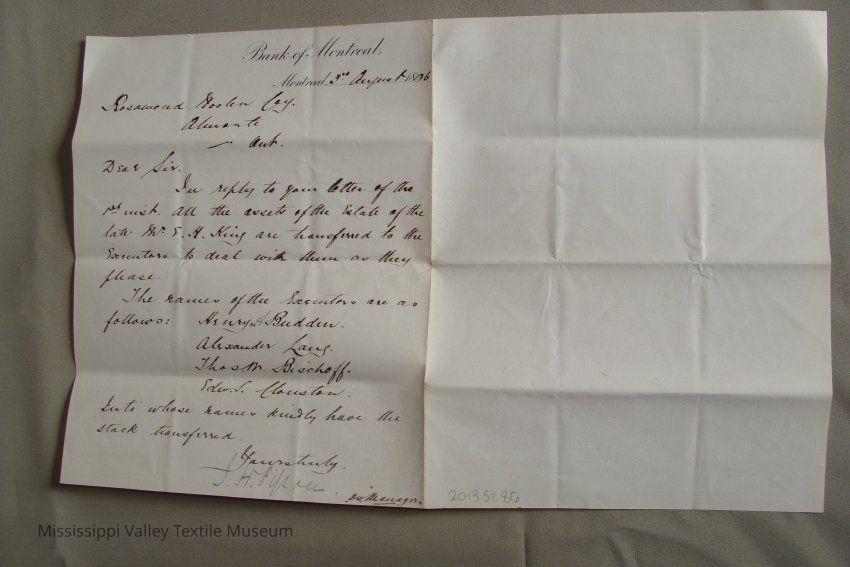 Bank of Montreal,
Montreal, 3rd August 1896
Rosamond Woolen Coy.
Almonte
Ont.
Dear Sir.
In reply to your letter of the
1st inst. All the assets of the Estate of the
late Mr E. H. King are transferred to the
Executors to deal with them as they
please.
The names of the Executors are as
follows: Henry Budden.
Alexander Lang.
Thos. W. Bischoff.
Edw. S. Clouston.
Into whose names kindly have the
stock transferred.
Yours truly.
Manager.
2013.57.86
Mississippi Valley Textile Museum